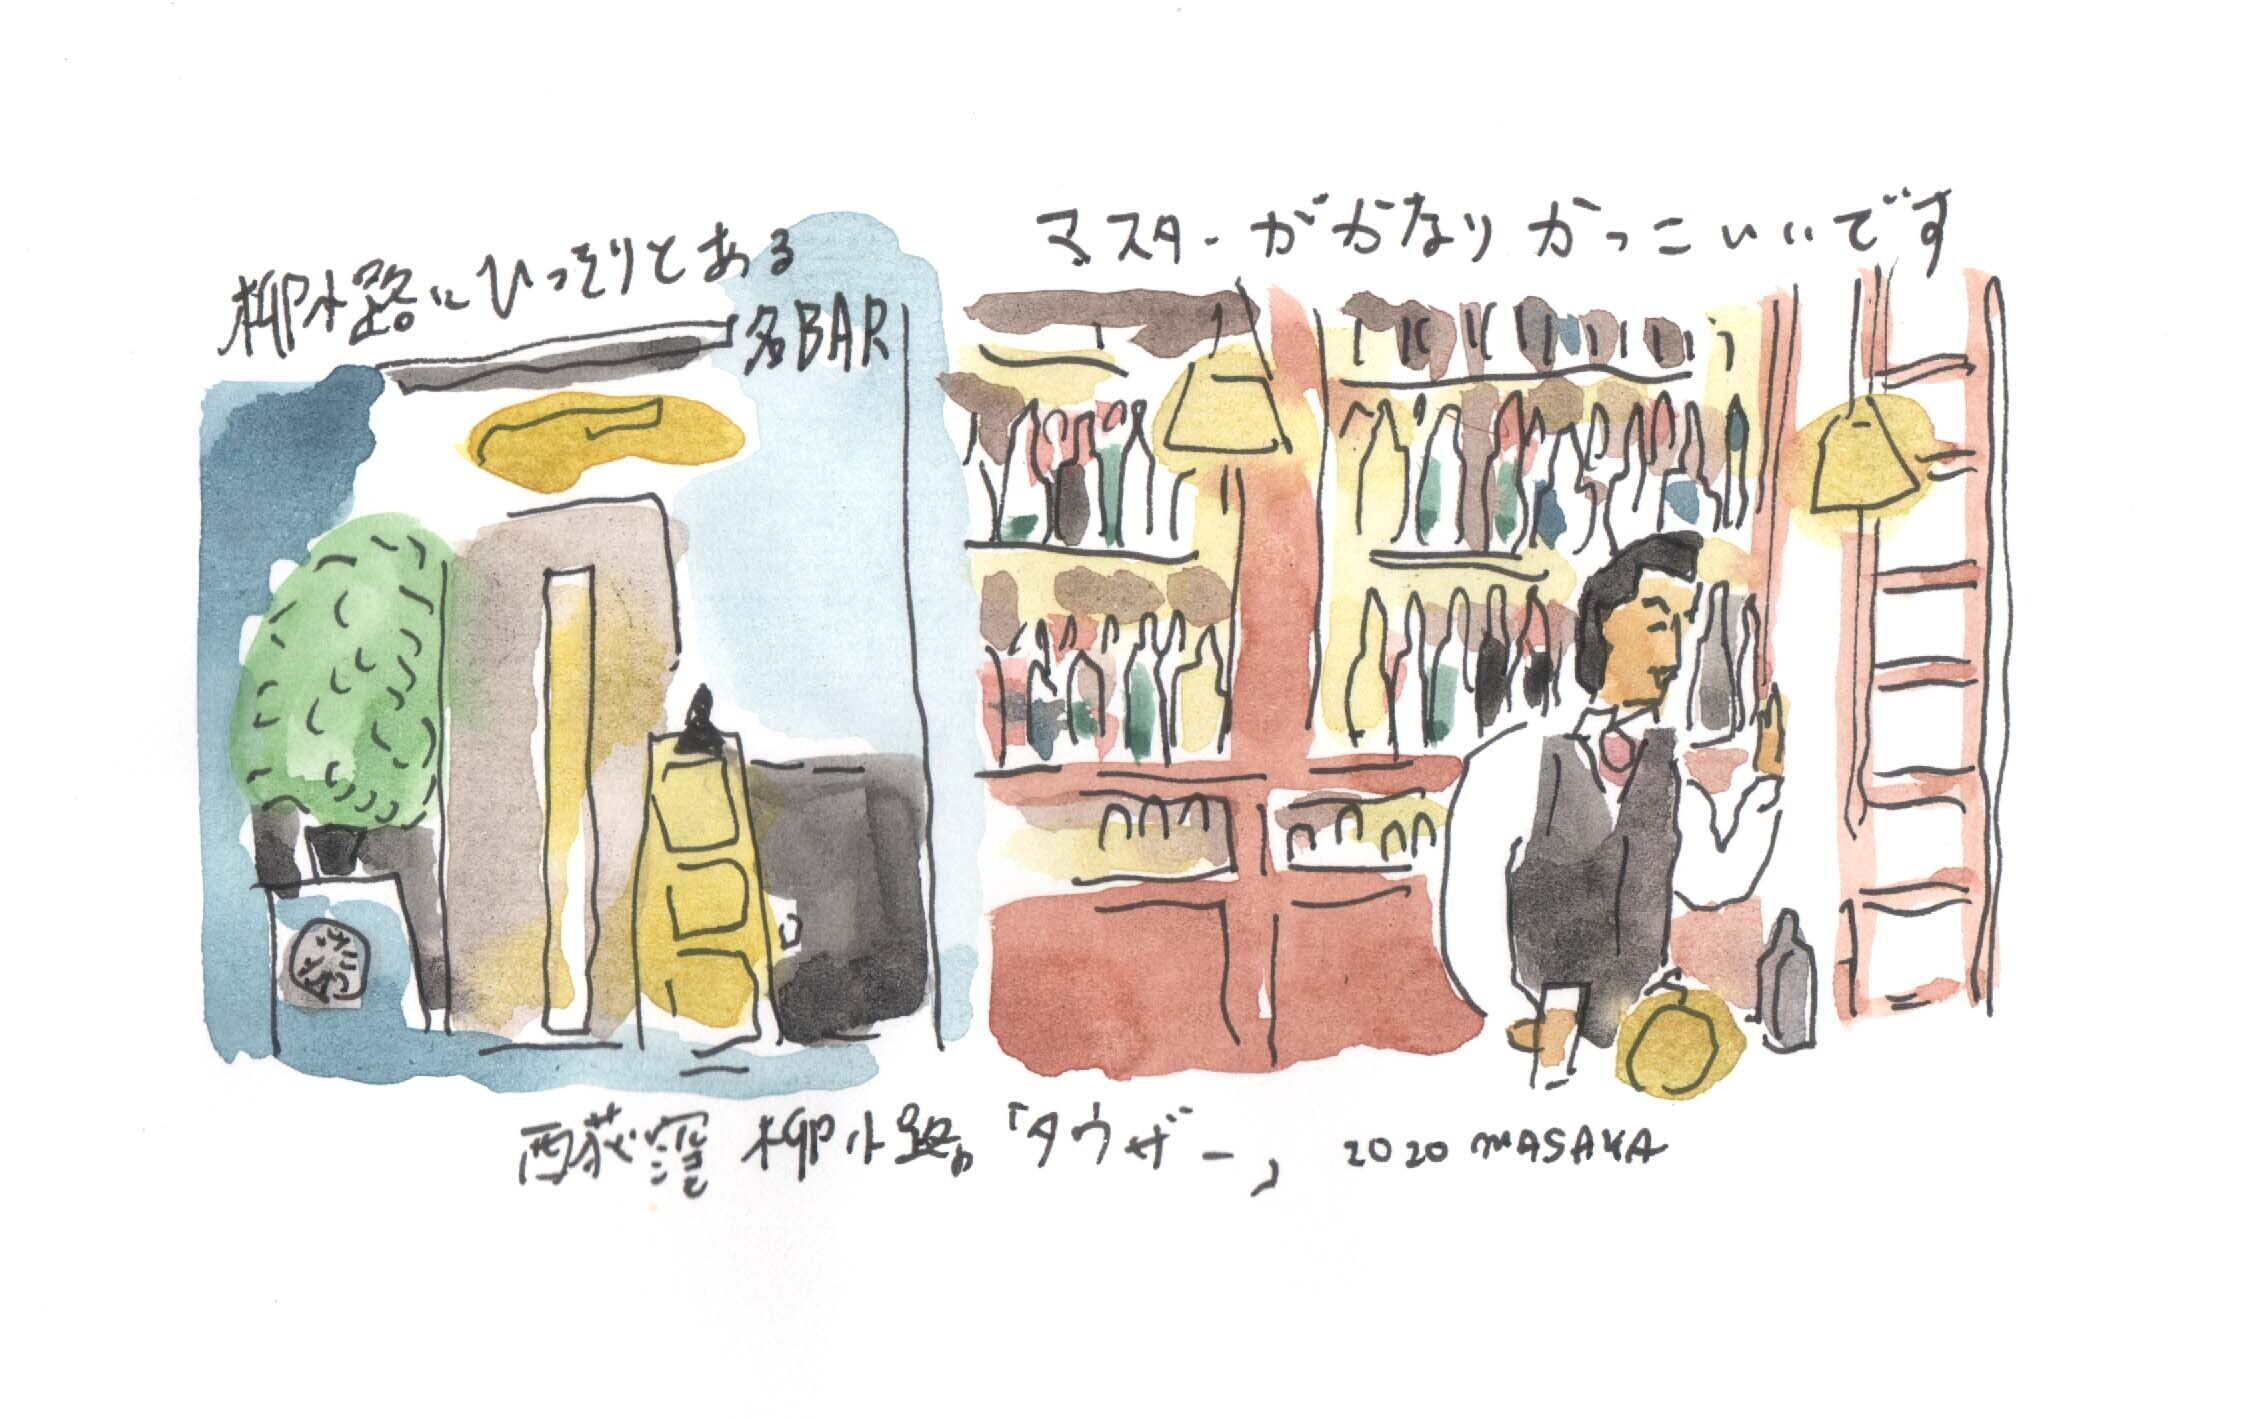 柳小路にひっそりとある
名BAR
マスターがかなりかっこいいです
西荻窪 柳小路。「タウザー」 2020 MASAYA